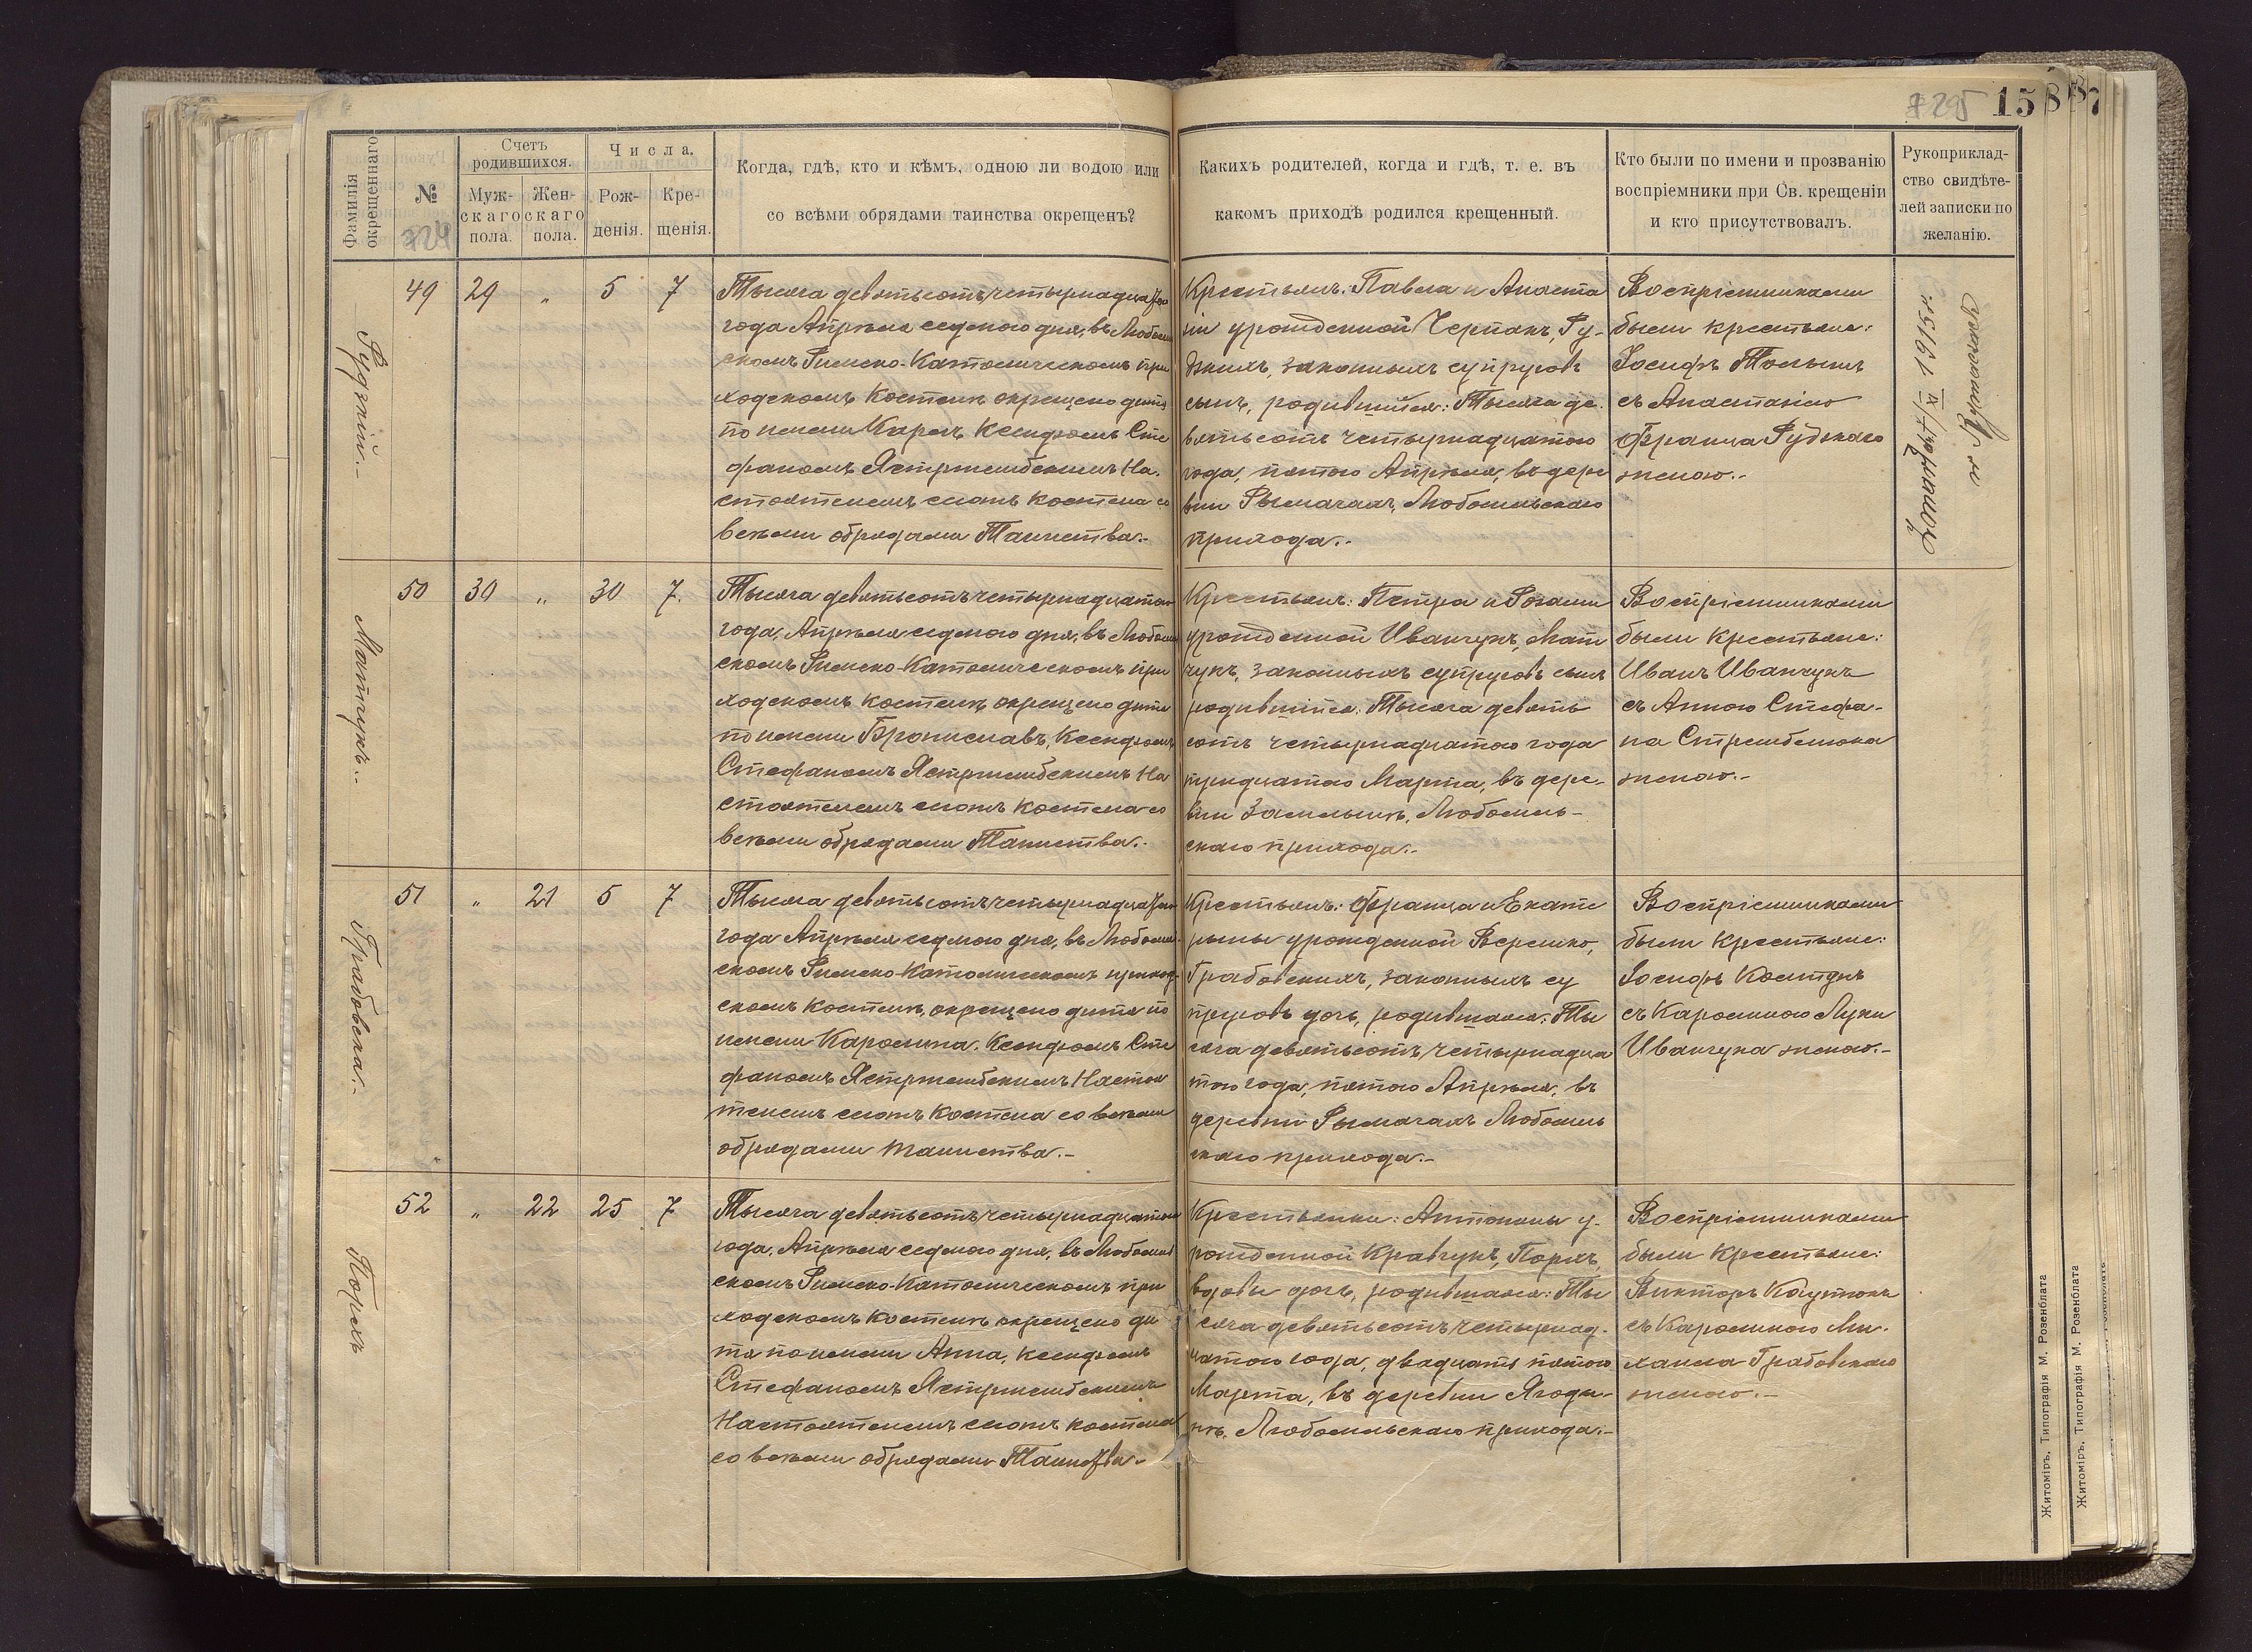 295
158
87
Фамилія окрещеннаго.
№
724
Счетъ родившихся.
Мужскаго пола.
Женскаго пола.
Числа.
Рожденія.
Крещенія.
Когда, гдѣ, кто и кѣмъ, одною ли водою или
со всѣми обрядами таинства окрещенъ?
Какихъ родителей, когда и гдѣ, т. е. въ
какомъ приходѣ родился крещенный.
Кто были по имени и прозванію
воспріемники при Св. крещеніи
и кто присутствовалъ.
Рукоприклад-
ство свидѣте-
лей записки по
желанію.
Рудзкій.-
49 29 „ 5 7
Тысяча девятьсотъ четырнадцатаго
года Апрѣля седмого дня, въ Любомль
скомъ Римско-Католическомъ при
ходскомъ костелѣ окрещено дитя
по имени Кароль, Ксендзомъ Сте
фаномъ Ястржембскимъ На-
стоятелемъ сего костела со
всѣми обрядами Таинства.-
Крестьянъ: Павла и Анаста
сіи урожденной Черпакъ, Ру-
дзкихъ, законныхъ супруговъ
сынъ, родившійся: Тысяча де-
вятьсотъ четырнадцатаго
года, пятаго Апрѣля, въ дере
вни Рымачахъ, Любомльскаго
прихода.-
Воспріемниками
были крестьяне:
Іосифъ
съ Анастасіею
Франца Рудзкаго
женою.-
1915 г.
Матчукъ.-
50 30 „ 30 7.
Тысяча девятьсотъ четырнадцатаго
года, Апрѣля седмого дня, въ Любомль
скомъ Римско-Католическомъ при
ходскомъ костелѣ окрещено дитя
по имени Брониславъ, Ксендзомъ
Стефаномъ Ястржембскимъ На
стоятелемъ сего костела со
всѣми обрядами Таинства.-
Крестьянъ: Петра и Розаліи
урожденной Иванчукъ, Мат
чукъ, законныхъ супруговъ сынъ
родившійся: Тысяча девять
сотъ четырнадцатаго года
тридцатаго Марта, въ дере-
вни Замлынѣ, Любомль-
скаго прихода.-
Воспріемниками
были крестьяне:
Иванъ Иванчукъ
съ Анною Стефа-
на
женою.-
Грабовска.-
51 „ 21 5 7
Тысяча девятьсотъ четырнадцатаго
года Апрѣля седмого дня, въ Любомль
скомъ Римско-Католическомъ приход-
скомъ костелѣ, окрещено дитя по
имени Каролина, Ксендзомъ Сте
фаномъ Ястржембскимъ Настоя
телемъ сего костела со всѣми
обрядами таинства.-
Крестьянъ: Франца и Екате
рины урожденной Верешко,
Грабовскихъ, законныхъ су
пруговъ дочь, родившаяся: Ты
сяча девятьсотъ четырнадца
таго года, пятаго Апрѣля, въ
деревни Рымачахъ Любомль
скаго прихода.-
Воспріемниками
были крестьяне:
Іосифъ
съ Каролиною Луки
Иванчука женою.-
Порихъ
52 „ 22 25 7
Тысяча девятьсотъ четырнадцатаго
года, Апрѣля седмого дня, въ Любомль
скомъ Римско-Католическомъ при
ходскомъ костелѣ окрещено ди
тя по имени Анна, Ксендзомъ
Стефаномъ Ястржембскимъ
Настоятелемъ сего костела
со всѣми обрядами Таинства.-
Крестьянки: Антонины у-
рожденной Кравчукъ, Порихъ,
вдовы дочь, родившаяся: Ты
сяча девятьсотъ четырнад-
цатаго года, двадцать пятаго
Марта, въ деревни Ягоди-
нѣ, Любомльскаго прихода.-
Воспріемниками
были крестьяне:
Викторъ
съ Каролиною Ми-
хаила Грабовскаго
женою.-
Житоміръ, Типографія М. Розенблата
Житоміръ, Типографія М. Розенблата